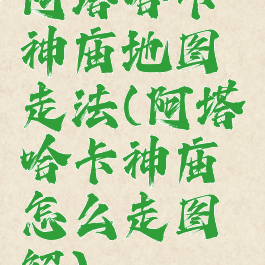 阿塔哈卡
神庙地图
走法(阿塔
哈卡神庙
怎么走图
解)